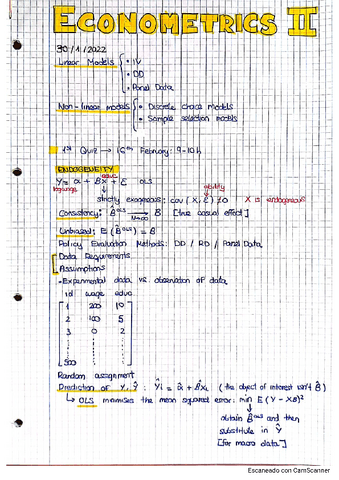 ECONOMETRICS II
30/1/2022
Linear Models
• IV
• DD
• Panel Data
Non-linear models
• Discrete choice models
• Sample selection models
1st Quiz → 16th February: 9-10h
ENDOGENEITY
educ
Y = α + βX + ε OLS
log wage
ability
strictly exogenous: cov (X, ε) ≠ 0 X is endogenous
Consistency: β̂ᴼᴸˢ → β [true casual effect]
N→∞
Unbiased: E (β̂ᴼᴸˢ) = β
Policy Evaluation Methods: DD / RD / Panel Data
Data Requirements
Assumptions
• Experimental data vs. observation of data
id wage educ
1 200 10
2 100 5
3 0 2
500
Random assignment
Prediction of Y, Ŷ: Ŷi = α̂ + β̂Xi (the object of interest isn't β̂)
↳ OLS minimises the mean squared error: min E (Y - Xβ)²
obtain β̂ᴼᴸˢ and then
substitute in Ŷ
[for macro data]
Escaneado con CamScanner